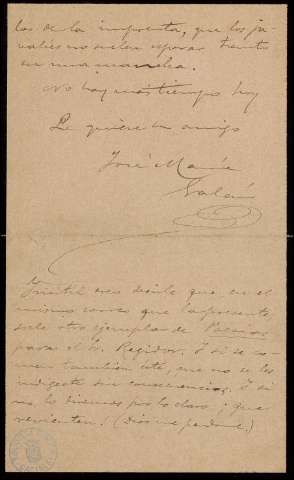 los de la imprenta, que los ja-
valies no suelen esperar
en una mancha.
No hay mas tiempo hoy
Le quiere su amigo
José María
Galán
Inutil creo decirle que en el
mismo correo que la presente
sale otro ejemplar de
para el Sr. Regidor. Y si se co-
men también este, que no se les
indigeste sin consecuencias. Y si
no lo diremos por lo claro ¡que
revienten! (Dios me perdone.)